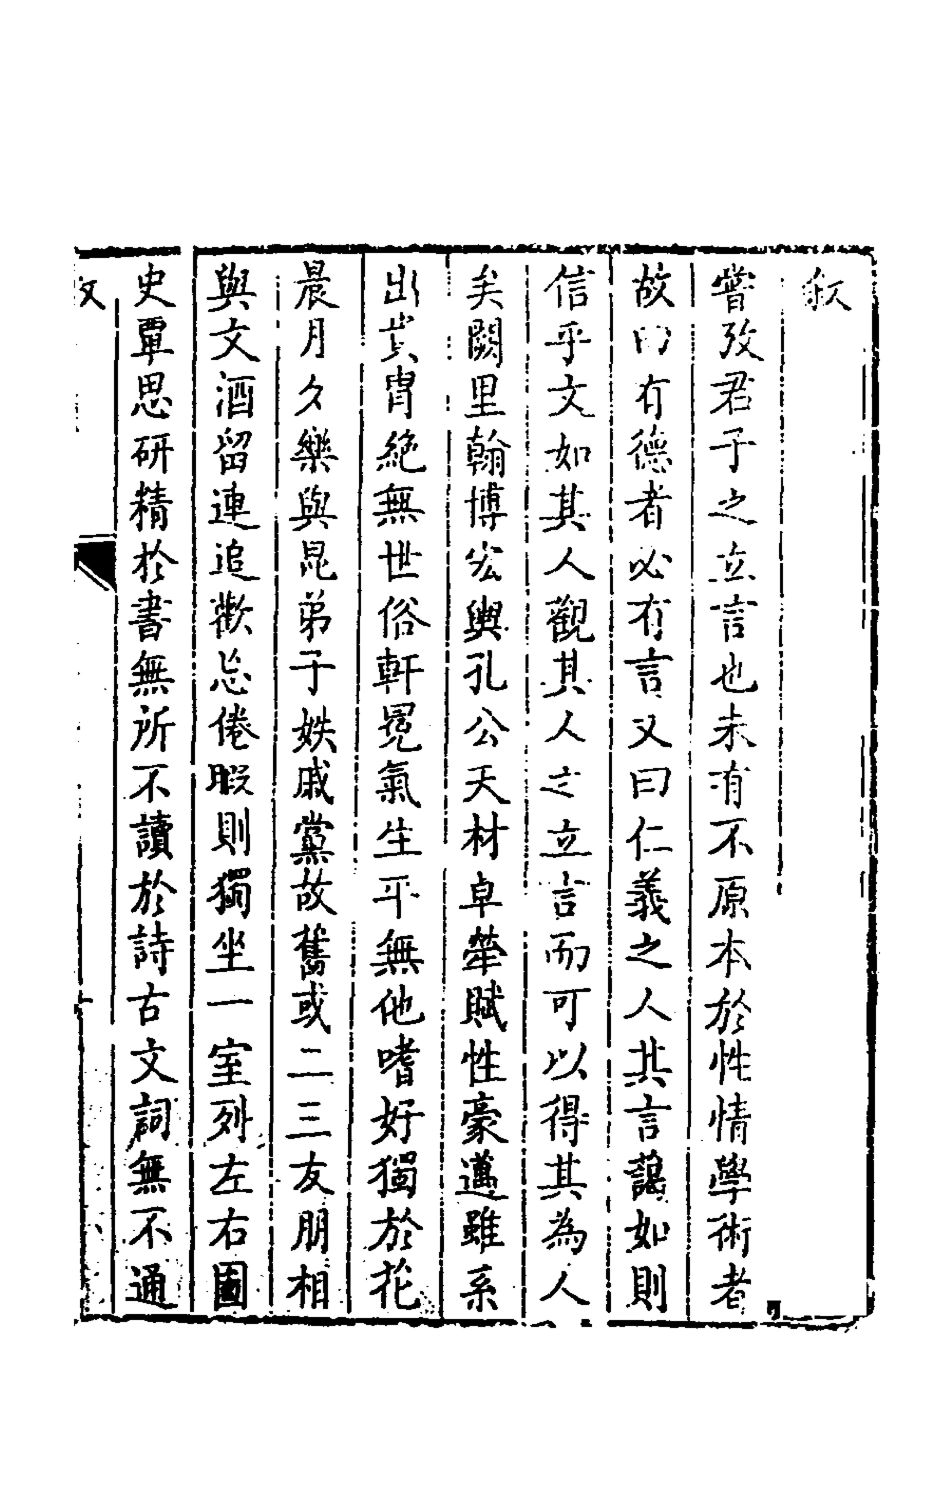 敘
嘗攷君子之立言也未有不原本於性情學術者
故曰有德者必有言又曰仁義之人其言藹如則
信乎文如其人觀其人之立言而可以得其為人
矣闕里翰博宏輿孔公天材卓犖賦性豪邁雖系
出貴胄絕無世俗軒冕氣生平無他嗜好獨於花
晨月夕樂與昆弟子姪戚黨故舊或二三友朋相
與文酒留連追歡忘倦暇則獨坐一室列左右圖
史覃思研精於書無所不讀於詩古文詞無不通